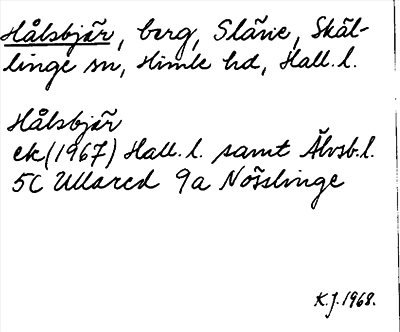 Hålsbjär, berg, Slärie, Skäl-
linge sn, Himle hd, Hall. l.
Hålsbjär
ek (1967) Hall. l. samt Älvsb. l.
5C Ullared 9a Nösslinge
K.J. 1968.